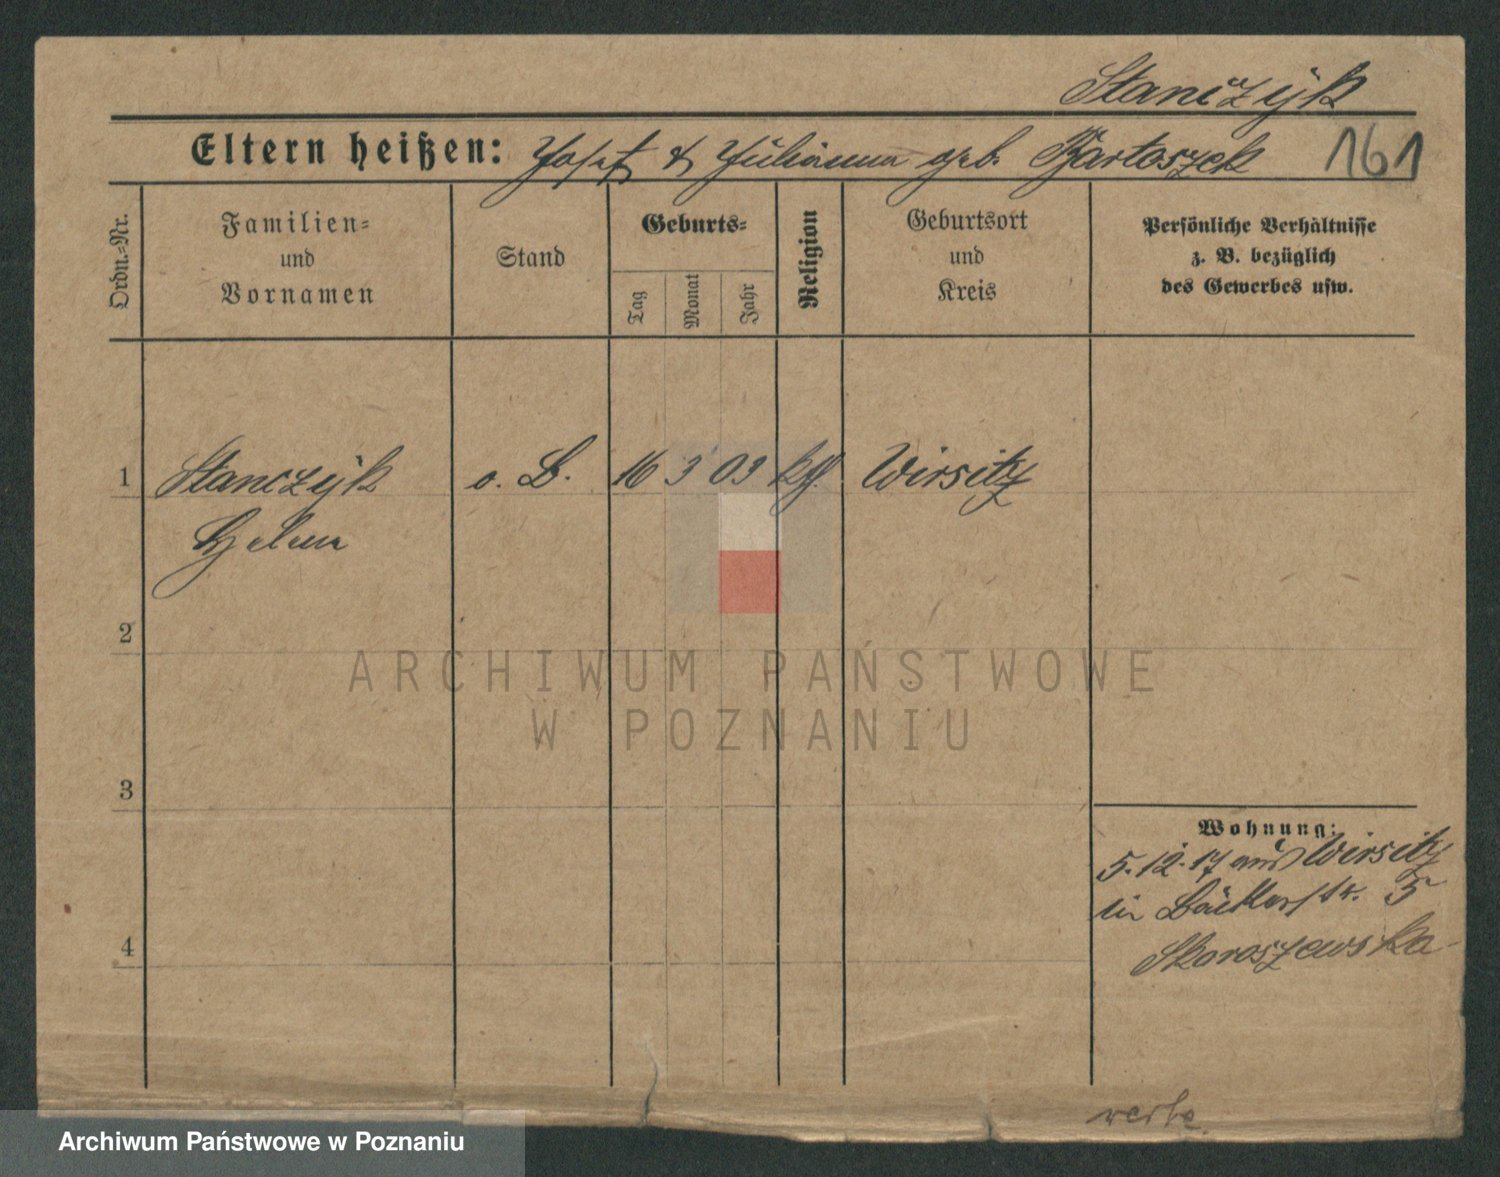 Stanczÿk
Eltern heißen: Josef & Julianna geb. Bartoszek 161
Ordn.-Nr.
Familien-
und
Vornamen
Stand
Geburts-
Tag
Monat
Jahr
Religion
Geburtsort
und
Kreis
Persönliche Verhältnisse
z. B. bezüglich
des Gewerbes usw.
1 Stanczÿk o. B. 16 3 03 kfl. Wirsitz
Helene
2
ARCHIWUM PAŃSTWOWE
W POZNANIU
3
Wohnung:
5.12.17 aus Wirsitz
in Bäckerstr. 5
4 Skoroszewska
Archiwum Państwowe w Poznaniu